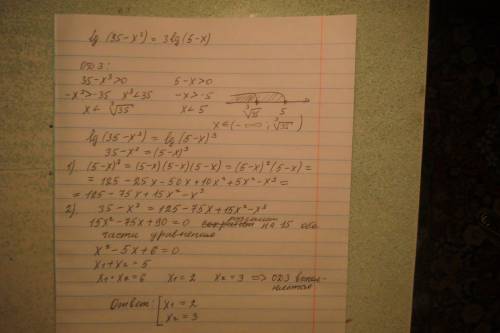 lg (35-x³) = 3lg(5-x)
ОДЗ:
35-x³>0 5-x>0
-x³>-35 x³<35 -x>-5
x< ∛35 x<5
∛35 5
x∈(-∞; ∛35)
lg(35-x³) = lg(5-x)³
35-x³ = (5-x)³
1) (5-x)³ = (5-x)(5-x)(5-x) = (5-x)²(5-x) =
= 125-25x-50x+10x²+5x²-x³ =
= 125-75x+15x²-x³
2) 35-x³ = 125-75x+15x²-x³
15x²-75x+90=0 разделим на 15 обе
части уравнения
x²-5x+6=0
x₁+x₂=5
x₁·x₂=6 x₁=2 x₂=3 => ОДЗ выпол-
няется
Ответ: [x₁=2
x₂=3